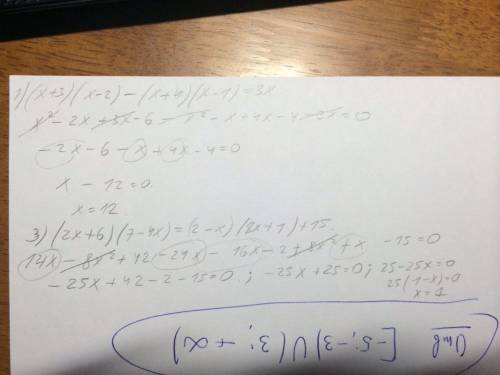 1) (x+3)(x-2) - (x+4)(x-1) = 3x
x² - 2x + 3x - 6 - x² - x + 4x - 4 - 3x = 0
-2x - 6 - x + 4x - 4 = 0
x - 12 = 0.
x = 12
3) (2x+6)(7-4x) = (2-x)(8x+1) + 15.
14x - 8x² + 42 - 24x - 16x - 2 + 8x² + x - 15 = 0
-25x + 42 - 2 - 15 = 0 ; -25x + 25 = 0 ; 25 - 25x = 0
25(1-x) = 0
x = 1
Отв [-5; -3) ∪ (3; +∞)